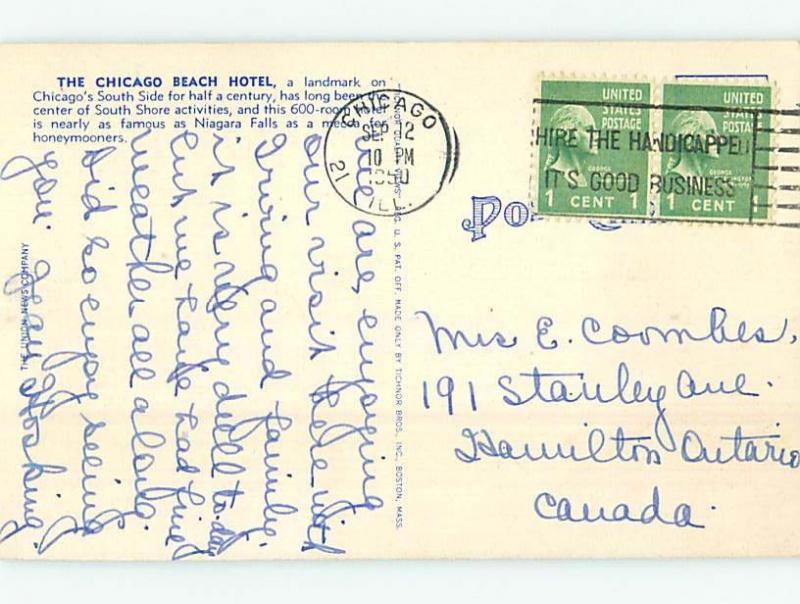 THE CHICAGO BEACH HOTEL, a landmark on
Chicago's South Side for half a century, has long been the
center of South Shore activities, and this 600-room hotel
is nearly as famous as Niagara Falls as a mecca for
honeymooners.
CHICAGO
SEP 12
10 PM
ILL.
21
HIRE THE HANDICAPPED
IT'S GOOD BUSINESS
UNITED
STATES
POSTAGE
GEORGE
1 CENT 1
UNITED
STATES
POSTA
GEORGE
1 CENT
We are, enjoying
our visit here with
Irving and family.
it is very dull today
but we have had fine
weather all along.
Did so enjoy seeing
you. Jean Hosking
REG. U. S. PAT. OFF. MADE ONLY BY TICHNOR BROS., INC., BOSTON, MASS.
THE UNION NEWS COMPANY
Mrs E. Coombes.
191 Stanley Ave.
Hamilton Ontario
Canada.